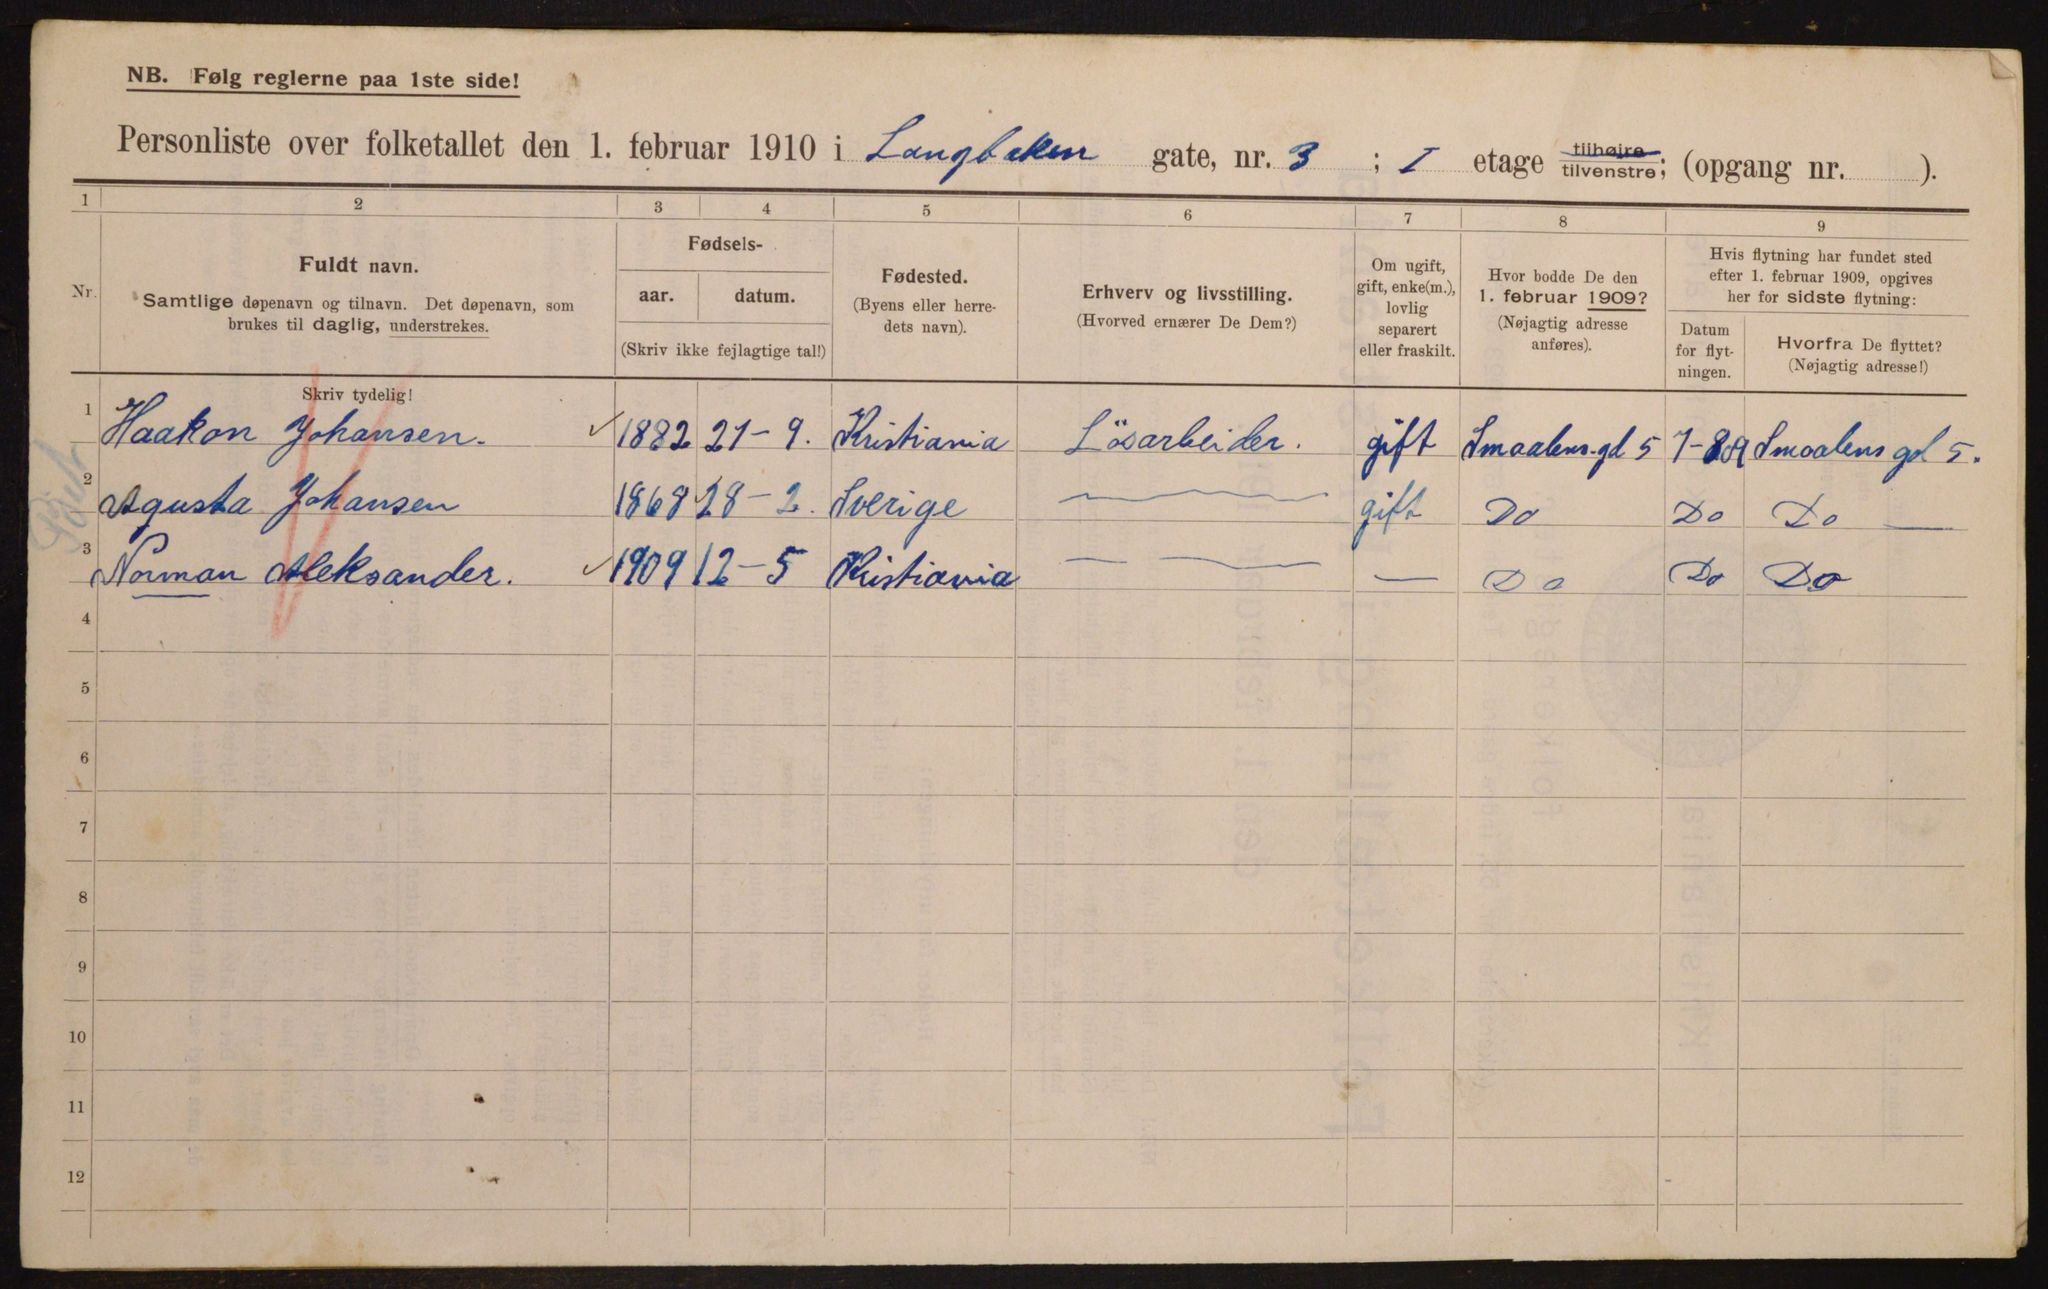 NB. Følg reglerne paa 1ste side!
Personliste over folketallet den 1. februar 1910 i Langbaken gate, nr. 3 ; I etage tilhøjre tilvenstre; (opgang nr. ).
1 2 3 4 5 6 7 8 9
Nr.
Fuldt navn.
Samtlige døpenavn og tilnavn. Det døpenavn, som
brukes til daglig, understrekes.
Skriv tydelig!
Fødsels-
aar. datum.
(Skriv ikke fejlagtige tal!)
Fødested.
(Byens eller herre-
dets navn).
Erhverv og livsstilling.
(Hvorved ernærer De Dem?)
Om ugift,
gift, enke(m.),
lovlig
separert
eller fraskilt.
Hvor bodde De den
1. februar 1909?
(Nøjagtig adresse
anføres).
Hvis flytning har fundet sted
efter 1. februar 1909, opgives
her for sidste flytning:
Datum
for flyt-
ningen.
Hvorfra De flyttet?
(Nøjagtig adresse!)
1 Haakon Johansen. 1882 21-9. Kristiania Lösarbeider. gift Smaalens.gd 5 Smaalens gd 5.
2 Agusta Johansen 1868 28-2. Sverige gift Do Do Do
3 Norman Aleksander. 1909 12-5 Kristiania — Do Do Do
4
5
6
7
8
9
10
11
12